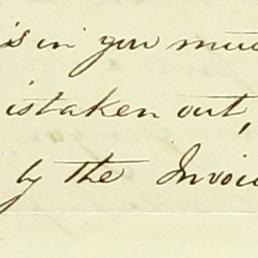 is in you mu
istaken out,
by the Invoi